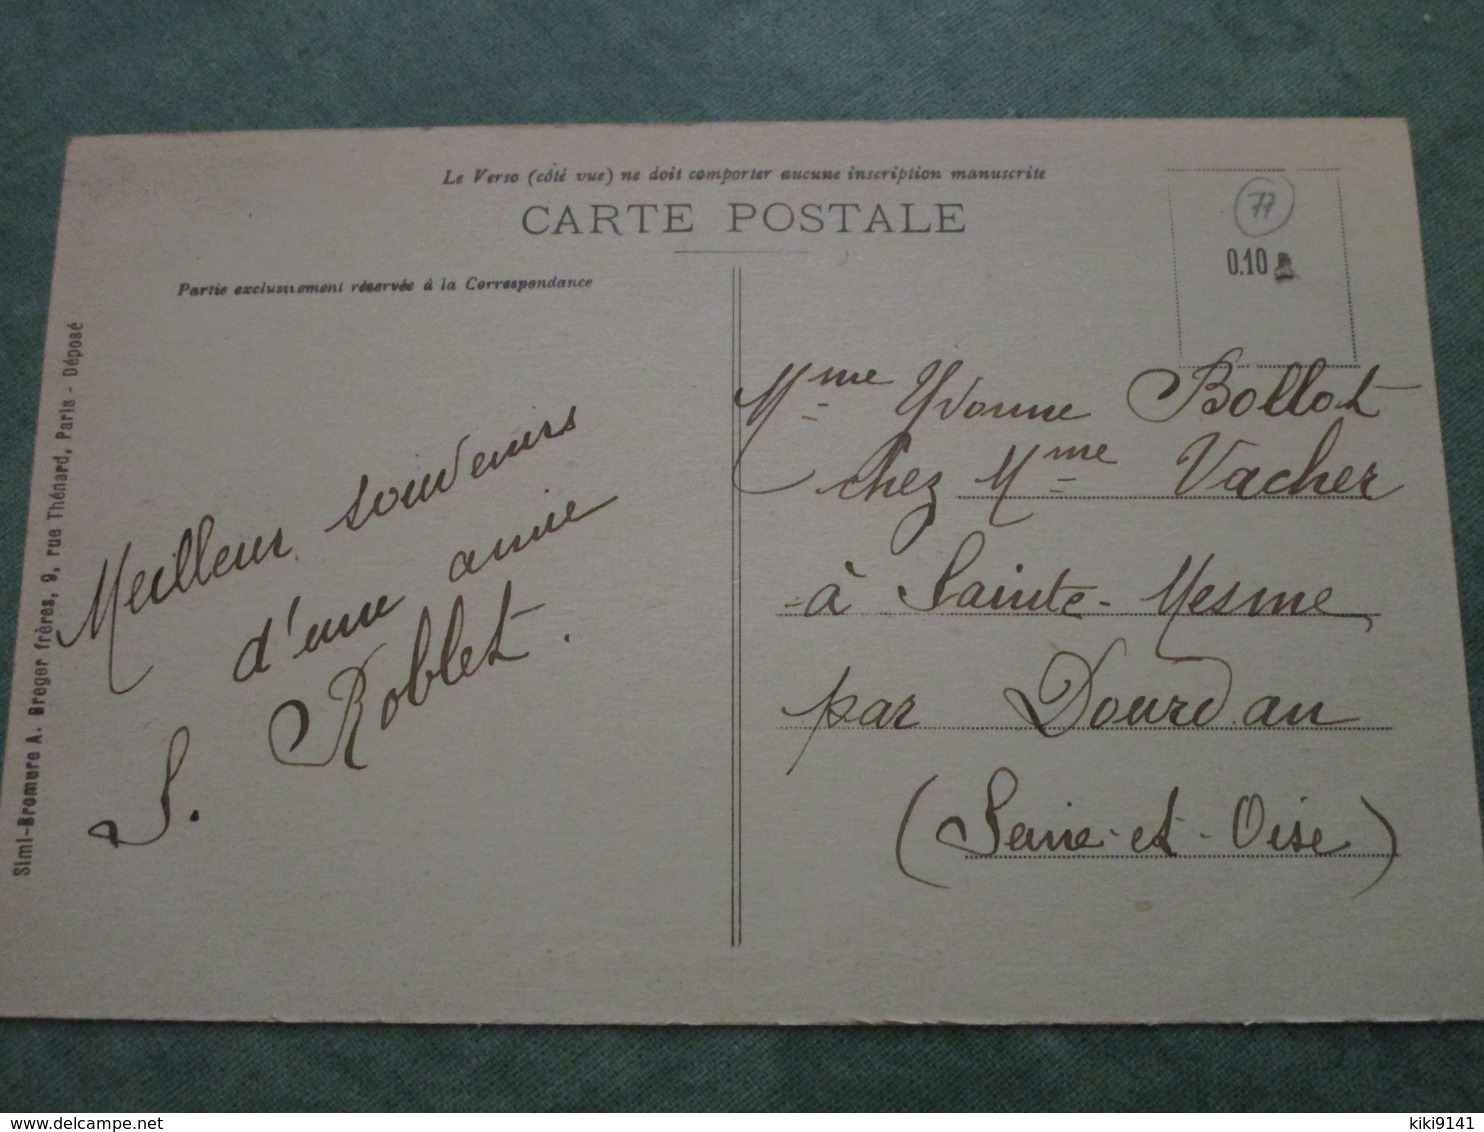 Le Verso (côté vue) ne doit comporter aucune inscription manuscrite
CARTE POSTALE
Partie exclusivement réservée à la Correspondance
77
0.10
Meilleur souvenirs
d'une amie
S. Roblet.
Mme Yvonne Bollot
chez Mme Vacher
à Sainte-Mesme
par Dourdan
(Seine-et-Oise)
Simi-Bromure A. Breger frères, 9, rue Thénard, Paris - Déposé
http://www.delcampe.net
kiki9141